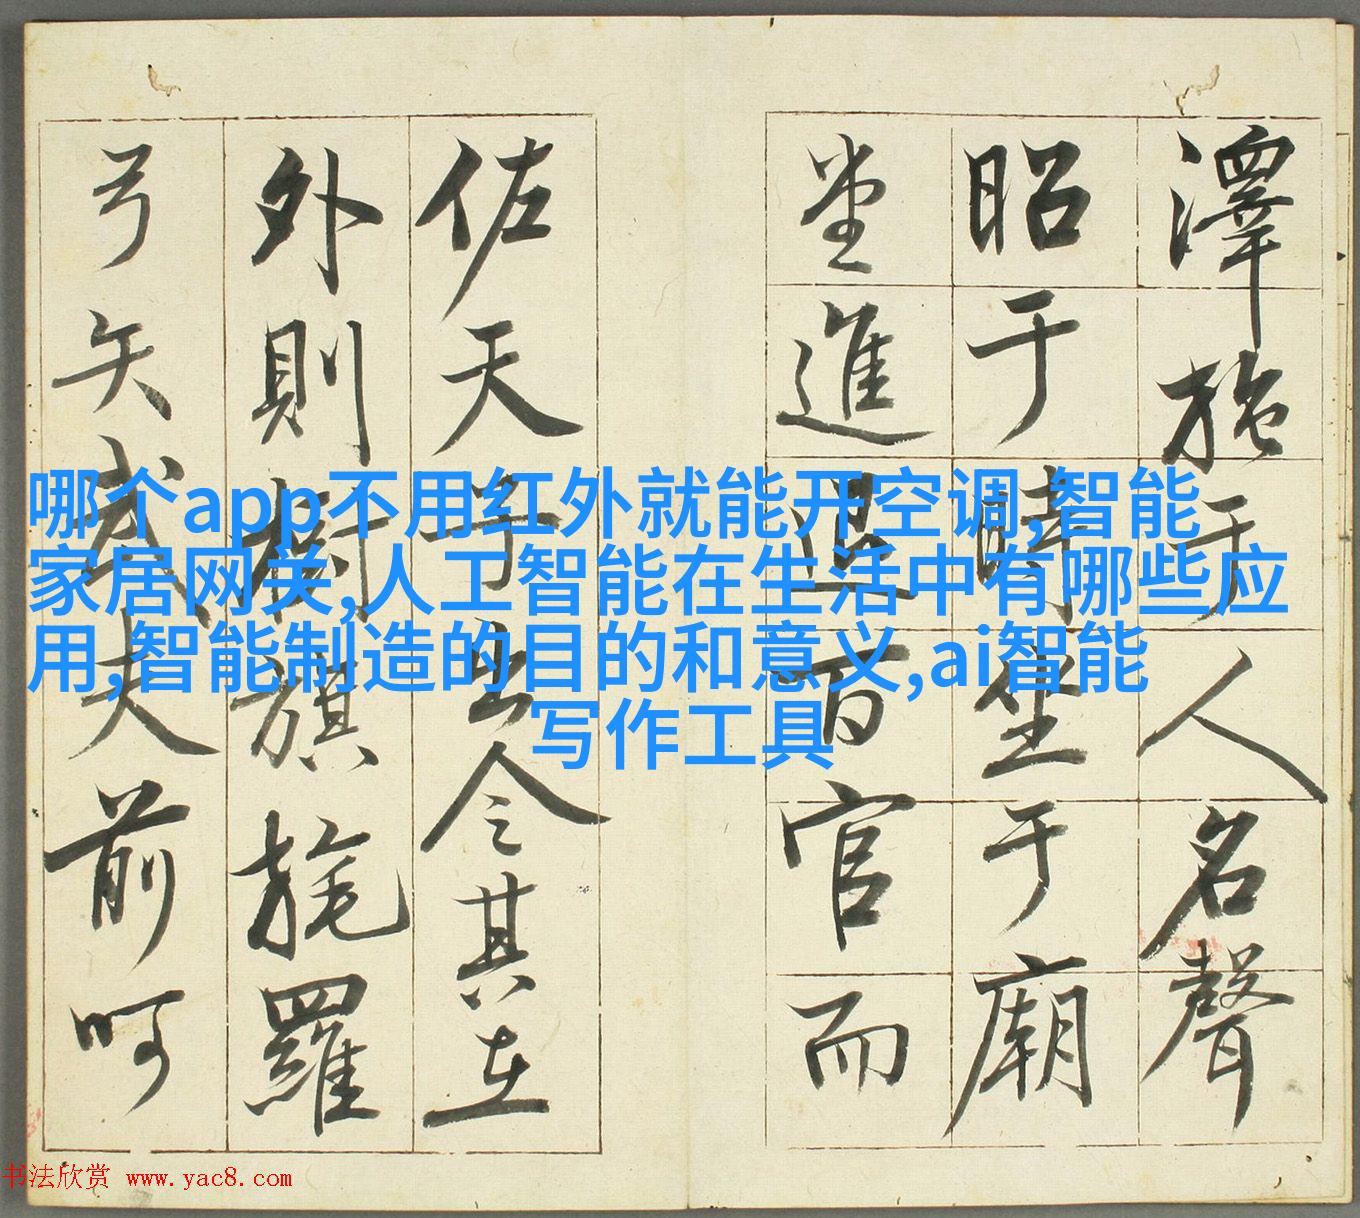 澤施于人名聲
昭于時坐于廟
堂進退百官而
佐天子出令其在
外則樹旗旄羅
弓矢武夫前呵
哪个app不用红外就能开空调,智能
家居网关,人工智能在生活中有哪些应
用,智能制造的目的和意义,ai智能
写作工具
书法欣赏 www.yac8.com